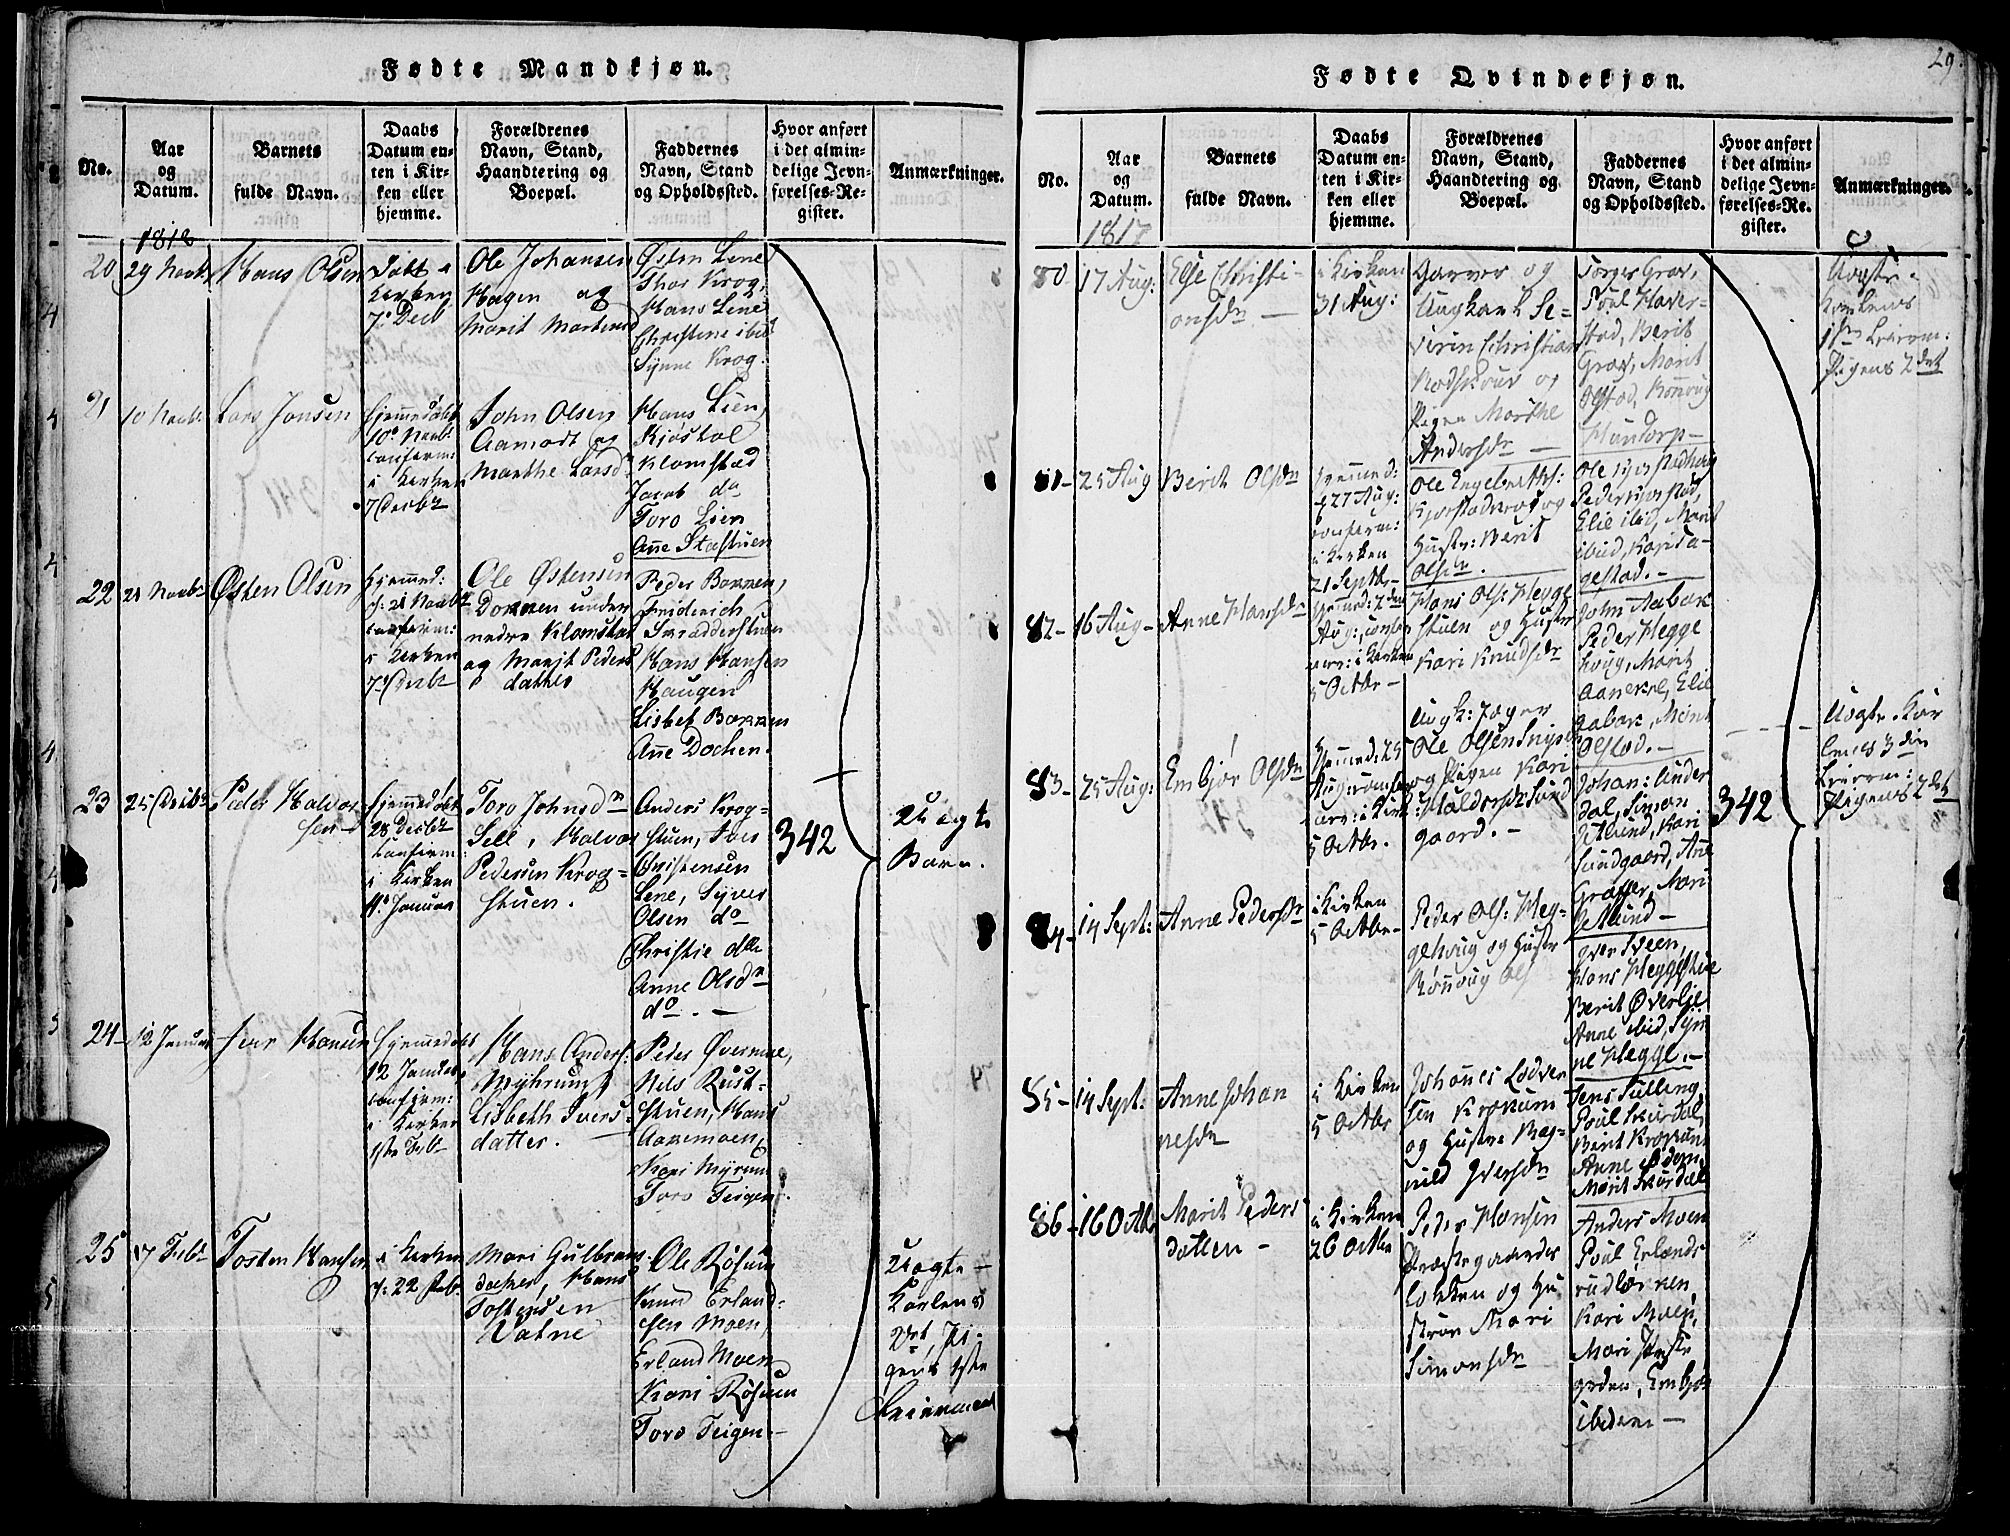 Fødte Mandkjøn.
No.
Aar
og
Datum.
Barnets
fulde Navn.
Daabs
Datum en-
ten i Kir-
ken eller
hjemme.
Forældrenes
Navn, Stand,
Haandtering og
Boepæl.
Faddernes
Navn, Stand
og Opholdssted.
Hvor anført
i det almin-
delige Jevn-
førelses-Re-
gister.
Anmærkninger.
1818
20
29 Novbr
Hans Olsen
Døbt i
Kirken
7de Decb
Ole Johansen
Hagen og
Marit Mortensd
Østen Lene
Thor Krog,
Hans Lene
Christine ibid
Synne Krog.
21
10 Novbr
Lars Jonsen
hjemmedøbt
10de Novbr
confirm:
i Kirken
7 Decbr
John Olsen
Aamodt og
Marthe Larsd
Hans Lien,
Kjøstol
Klomstad
Jacob do
Toro Lien
Anne Stastuen
22
21 Novbr
Østen Olsen
hjemmed:
d: 21 Novbr
confirm:
i Kirken
7 Decbr
Ole Østensen
Dokken under
nedre Klomstad
og Marit Peders
datter
Peder Bakken,
Friderich
Skrædderstuen
Hans Hansen
Haugen
Lisbet Bakken
Anne Dochen.
23
25 Decbr
Peder Halvor
sen
hjemmedøbt
28 Decbr
confirm:
i Kirken
Januar
Toro Johnsdr
Sell, Halvor
Pedersen Krog-
stuen.
Anders Krog-
stuen, Iver
Christensen
Lene, Syver
Olsen do
Christie do
Anne Olsdr
do. —
342
Uægte
Barn.
24
12 Januar
Iver Hansen
hjemmedøbt
12 Januar
confirm:
i Kirken
1ste Feb
Hans Anders:
Myhrum,
Lisbeth Ivers
datter.
Peder Øvermoe,
Nils Rust-
stuen, Hans
Aakremoen,
Kari Myrum
Toro Teigen.
25
17 Febr
Tosten Hansen
i Kirken
d: 22 Feb.
Mari Gulbrans
datter, Hans
Tostensen
Vatne
Ole Røsum
Knud Erland-
sen Moen,
Erland Moen
Kari Røsum
Toro Teigen—
Uægte —
Karlens
2det, Pi-
gens 1ste
Leiermaal
29.
Fødte Qvindekjøn.
No.
Aar
og
Datum.
Barnets
fulde Navn.
Daabs
Datum en-
ten i Kir-
ken eller
hjemme.
Forældrenes
Navn, Stand,
Haandtering og
Boepæl.
Faddernes
Navn, Stand
og Opholdssted.
Hvor anført
i det almin-
delige Jevn-
førelses-Re-
gister.
Anmærkninger.
1817
80
17 Aug:
Else Christi-
ansdr —
i Kirken
31 Aug:
Garver og
Ungkarl Se-
verin Christian
Rodskour og
Pigen Marthe
Andersdr —
Torger Grav,
Poul Haver-
stad, Berit
Grav, Marit
Olstad, Rønnoug
Hundorp —
Uægte.
Karlens
1ste Leierm:
Pigens 2det
81-
25 Aug
Berit Olsdr
hjemmed:
27 Aug:
confirm:
i Kirken
21 Septbr
Ole Engebrethss:
Kjorstadhoug og
Hustr: Berit
Olsdr.
Ole Kjorstadhoug
Peder Kjorstad,
Elie ibid, Marit
ibid, Kari
gestad. —
82-
16 Aug-
Anne Hansdr
hjemmed:
Aug:, confir
i Kirken
5 Octbr —
Hans Ols: Hegge
stuen og Hustr
Kari Knudsdr
John Aabak
Peder Hegge
houg, Marit
Elie
Aabak, Marit
Olstad. —
83-
25 Aug:
Embjør Olsdr
hjemmed: 25
Aug:
i Kirk:
5 Octbr.
Ungk: Jæger
Ole Olsen
og Pigen Kari
Haldorsdr Sund
gaard. —
Johan:
dal, Simon
Kari
Sundgaard, Ane
Mari
342
Uægte. Kar
lens 3die
Leierm:
Pigens 2det
84-
14 Sept:
Anne Pedersdr
i Kirken
5 Octbr-
Peder Ols: Heg-
gehoug og Hustr
Rønnoug Ols
Iver Sveen,
Hans Heggestue
Berit Øverlie
Anne ibid, Syn
ne Hegge. —
85-
14 Sept:
Anne Johan
nesdr
i Kirken
5 Octbr
Johanes Lodven
sen Krokum
og Hustru Rag-
nild Iversdr
Jens Sulling
Poul Skurdal
Berit Krokum
Anne ibidem
Marit Skurdal
86-
16 Octbr
Marit Peders
datter —
i Kirken
26 Octbr
Peder Hansen
Præstegaards
Løkken og Hu
strue Mari
Simensdr
Anders Moen
Poul Erlands
Kari Moen,
Mari Præste
garden, Embjør
ibidem —